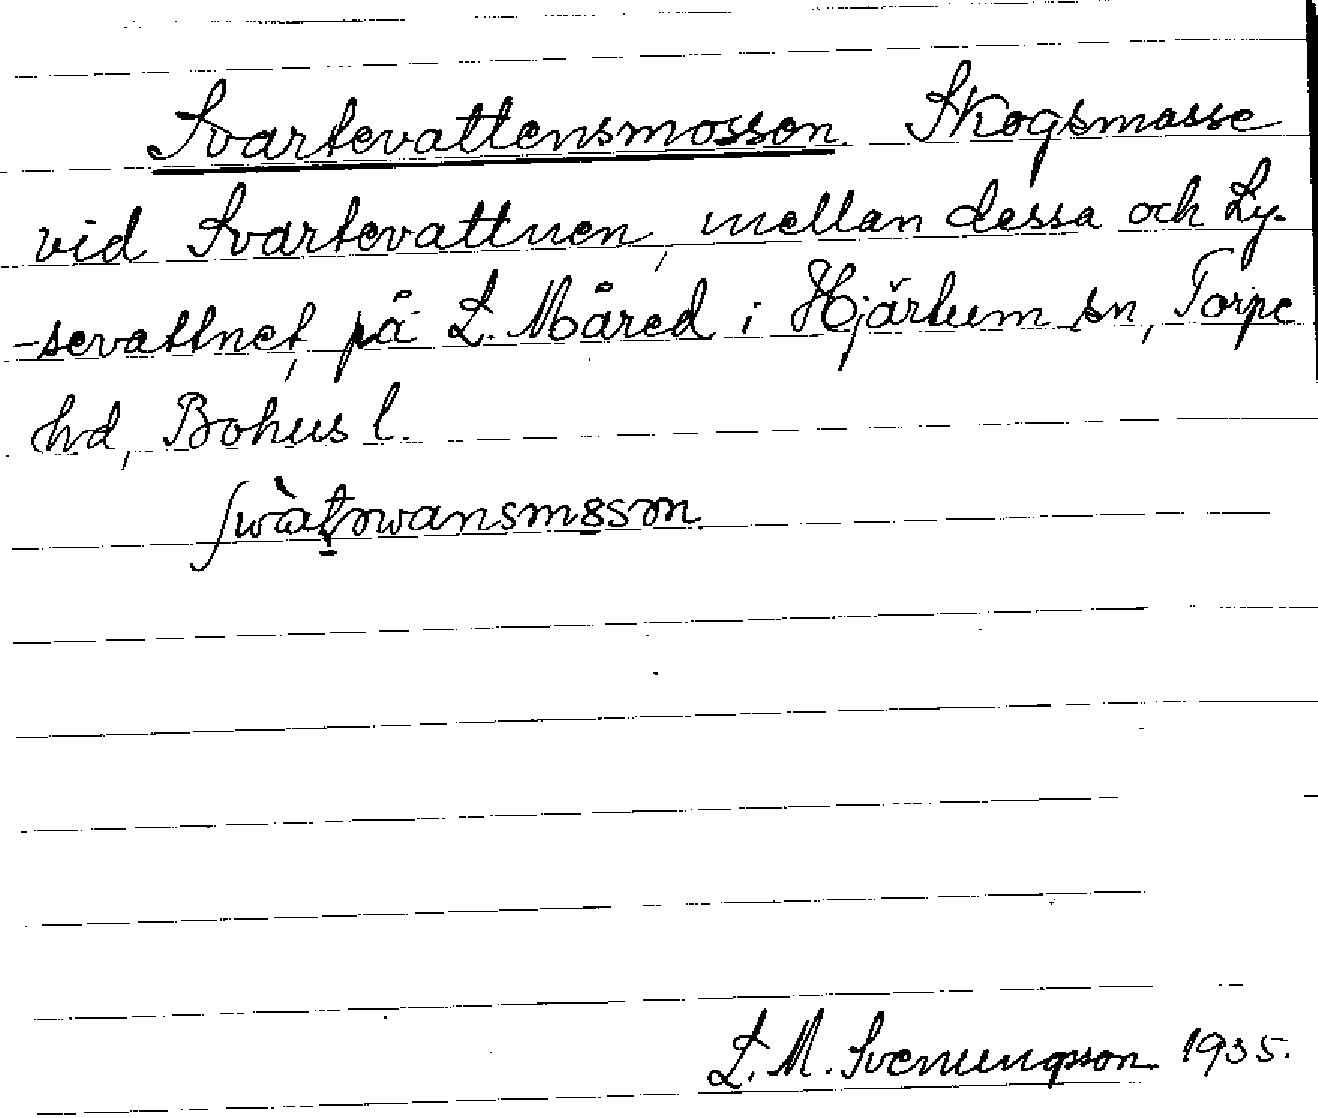 Svartevattensmossen. Skogsmosse
vid Svartevattnen, mellan dessa och Ly-
-sevattnet, på L. Måred i Hjärtum sn, Torpe
hd, Bohus l.
L. M. Svenungsson 1935.